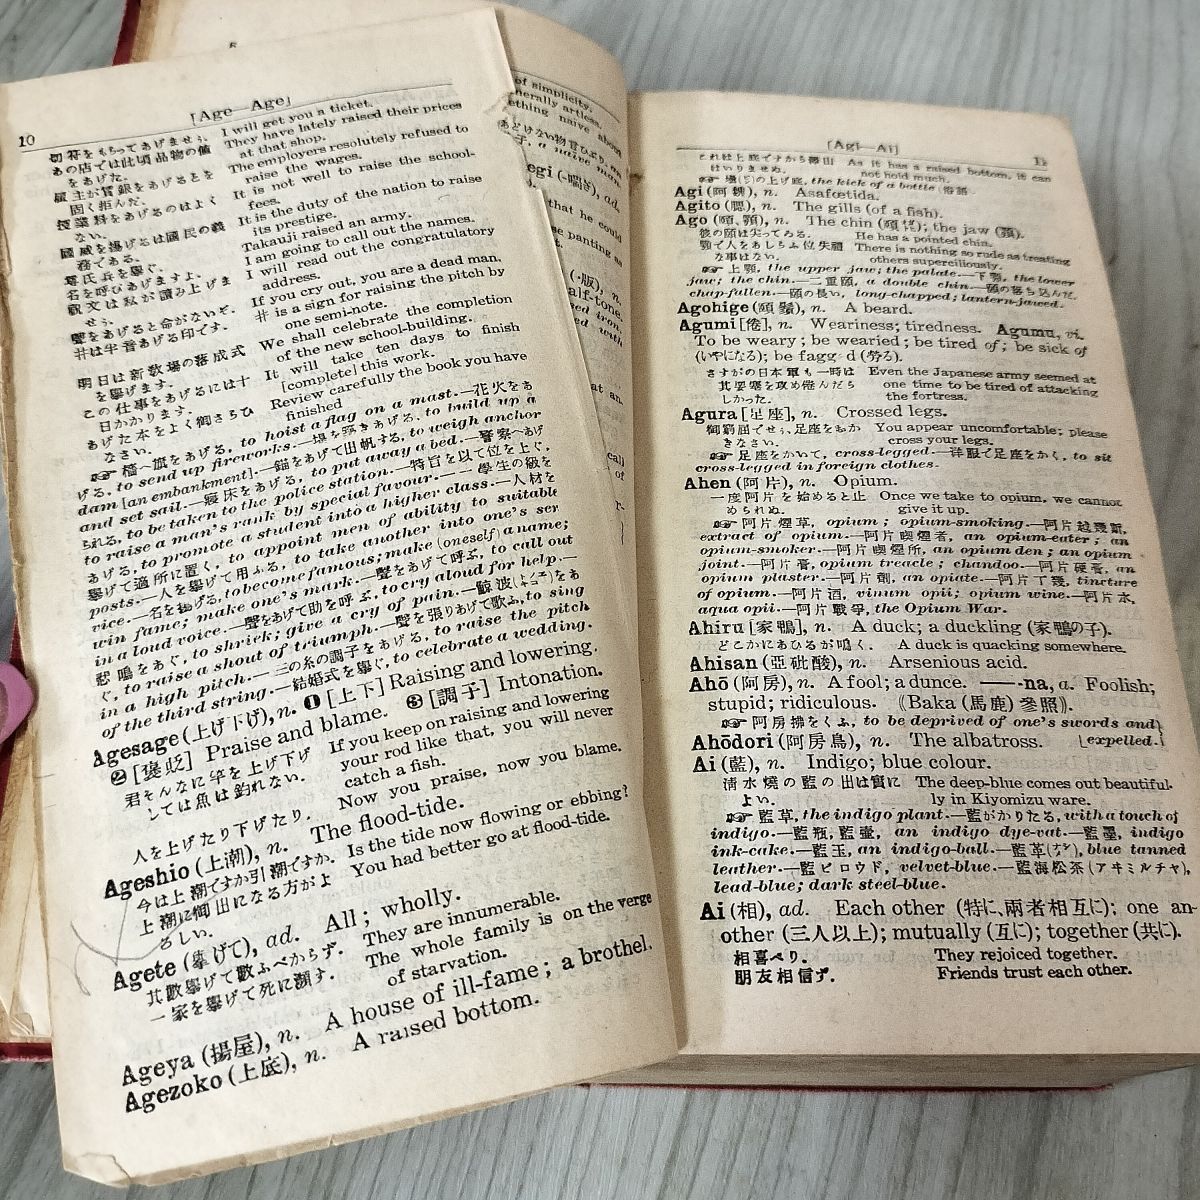 10
[Age—Age]
切符をもらってあげませう. I will get you a ticket.
あの店では此頃品物の値 They have lately raised their prices
をあげた. at that shop.
雇主が賃銀をあげるとを The employers resolutely refused to
固く拒んだ. raise the wages.
授業料をあげるのはよく It is not well to raise the school-
ない. fees.
國威を揚げるは國民の義 It is the duty of the nation to raise
務である. its prestige.
尊氏兵を擧ぐ. Takauji raised an army.
名を呼びあげますよ. I am going to call out the names.
祝文は私が讀み上げま I will read out the congratulatory
せう. address.
聲をあげると命がないぞ. If you cry out, you are a dead man.
井は半音あげる印です. # is a sign for raising the pitch by
one semi-note.
明日は新敎場の落成式 We shall celebrate the completion
を擧げます. of the new school-building.
この仕事をあげるには十 It will take ten days to finish
日かかります. [complete] this work.
あげた本をよく御さらひ Review carefully the book you have
なさい. finished
☞ 檣へ旗をあげる, to hoist a flag on a mast.—花火をあ
げる, to send up fireworks.—堤を築きあげる, to build up a
dam [an embankment].—錨をあげて出帆する, to weigh anchor
and set sail.—寢床をあげる, to put away a bed.—警察へあげ
られる, to be taken to the police station.—特旨を以て位を上ぐ,
to raise a man's rank by special favour.—一學生の級を
あげる, to promote a student into a higher class.—人材を
擧げて適所に置く, to appoint men of ability to suitable
posts.—人を擧げて用ふる, to take another into one's ser
vice.—名を揚げる, to become famous; make (oneself) a name;
win fame; make one's mark.—聲をあげて呼ぶ, to call out
in a loud voice.—聲をあげて助を呼ぶ, to cry aloud for help.—
悲鳴をあぐ, to shriek; give a cry of pain.—鯨波をあ
ぐ, to raise a shout of triumph.—聲を張りあげて歌ふ, to sing
in a high pitch.—三の糸の調子をあげる, to raise the pitch
of the third string.—結婚式を擧ぐ, to celebrate a wedding.
Agesage (上げ下げ), n. ❶ [上下] Raising and lowering.
❷ [褒貶] Praise and blame. ❸ [調子] Intonation.
君そんなに竿を上げ下げ If you keep on raising and lowering
しては魚は釣れない. your rod like that, you will never
catch a fish.
人を上げたり下げたり. Now you praise, now you blame.
Ageshio (上潮), n. The flood-tide.
今は上潮ですか引潮ですか. Is the tide now flowing or ebbing?
上潮に御出になる方がよ You had better go at flood-tide.
ろしい.
Agete (擧げて), ad. All; wholly.
其數擧げて數ふべからず. They are innumerable.
一家を擧げて死に瀕す. The whole family is on the verge
of starvation.
Ageya (揚屋), n. A house of ill-fame; a brothel.
Agezoko (上底), n. A raised bottom.
of simplicity.
nerally artless,
ething naive about
あどけない物言ひぶり, an
子, a naive man.
egi (-喘ぎ), ad.
that he could
se panting as
(-版), n.
alf-tone.
[Agi—Ai]
これは上底ですから澤山 As it has a raised bottom, it can
はいりませぬ. not hold much.
☞ 壜の上げ底, the kick of a bottle (俗語.
Agi (阿魏), n. Asafœtida.
Agito (腮), n. The gills (of a fish).
Ago (頤, 顎), n. The chin (頤); the jaw (顎).
彼の頤は尖ってゐる. He has a pointed chin.
顎で人をあしらふ位失禮 There is nothing so rude as treating
な事はない. others superciliously.
☞ 上顎, the upper jaw; the palate.—下顎, the lower
jaw; the chin.—二重頤, a double chin.—頤の落ち込んだ,
chap-fallen.—頤の長い, long-chapped; lantern-jawed.
Agohige (頤鬚), n. A beard.
Agumi [倦], n. Weariness; tiredness. Agumu, vi.
To be weary; be wearied; be tired of; be sick of
(いやになる); be fagg d (勞る).
さすがの日本軍も一時は Even the Japanese army seemed at
其要塞を攻め倦んだら one time to be tired of attacking
しかった. the fortress.
Agura [足座], n. Crossed legs.
御窮屈でせう, 足座をおか You appear uncomfortable; please
きなさい. cross your legs.
☞ 足座をかいて, cross-legged.—洋服で足座をかく, to sit
cross-legged in foreign clothes.
Ahen (阿片), n. Opium.
一度阿片を始めると止 Once we take to opium, we cannot
められぬ. give it up.
☞ 阿片煙草, opium; opium-smoking.—阿片越幾斯,
extract of opium.—阿片喫煙者, an opium-eater; an
opium-smoker.—阿片喫煙所, an opium den; an opium
joint.—阿片膏, opium treacle; chandoo.—阿片硬膏, an
opium plaster.—阿片劑, an opiate.—阿片丁幾, tincture
of opium.—阿片酒, vinum opii; opium wine.—阿片水,
aqua opii.—阿片戰爭, the Opium War.
Ahiru [家鴨], n. A duck; a duckling (家鴨の子).
どこかにあひるが鳴く. A duck is quacking somewhere.
Ahisan (亞砒酸), n. Arsenious acid.
Ahō (阿房), n. A fool; a dunce. ——-na, a. Foolish;
stupid; ridiculous. 《Baka (馬鹿) 參照》.
☞ 阿房拂をくふ, to be deprived of one's swords and
Ahōdori (阿房鳥), n. The albatross. [expelled.
Ai (藍), n. Indigo; blue colour.
淸水燒の藍の出は實に The deep-blue comes out beautiful-
よい. ly in Kiyomizu ware.
☞ 藍草, the indigo plant.—藍がかりたる, with a touch of
indigo.—藍瓶, 藍壷, an indigo dye-vat.—藍墨, indigo
ink-cake.—藍玉, an indigo-ball.—藍革, blue tanned
leather.—藍ビロウド, velvet-blue.—藍海松茶 (アヰミルチャ),
lead-blue; dark steel-blue.
Ai (相), ad. Each other (特に、兩者相互に); one an-
other (三人以上); mutually (互に); together (共に).
相喜べり. They rejoiced together.
朋友相信ず. Friends trust each other.